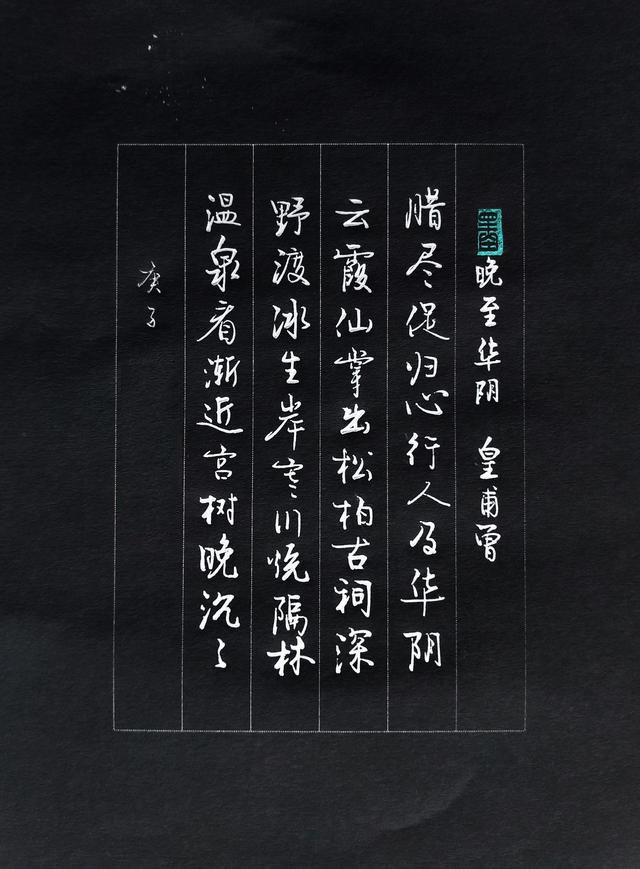 晚至华阴 皇甫曾
腊尽促归心行人及华阴
云霞仙掌出松柏古祠深
野渡冰生岸寒川烧隔林
温泉看渐近宫树晚沉〻
庚子